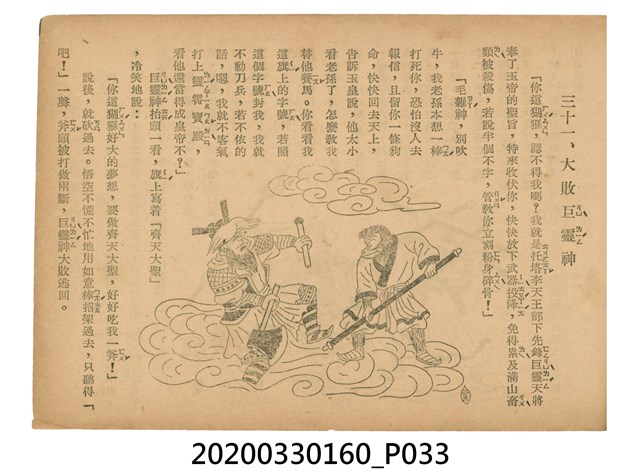 三十一、大敗巨靈神
「你這猢猻，認不得我嗎？我就是托塔李天王部下先鋒巨靈天將
奉了玉帝的聖旨，特來收伏你，快快放下武器投降，免得累及滿山畜
類被殺傷，若說半個不字，管敎你立刻粉身碎骨！」
「毛雜神，別吹
牛，我老孫本想一棒
打死你，恐怕沒人去
報信，且留你一條狗
命，快快回去天上，
告訴玉皇說，他太小
看老孫了，怎麼敎我
替他養馬。你看看我
這旗上的字號，若照
這個字號封我，我就
不動刀兵，若不依的
話，嗯，我就不客氣
打上靈霄寶殿，
看他還當得成皇帝不？」
巨靈神抬頭一看，旗上寫着「齊天大聖」
，冷笑地說：
「你這猢猻好大的夢想，要做齊天大聖，好好吃我一斧！」
說後，就砍過去。悟空不慌不忙地用如意棒招架過去，只聽得「
吧！」一聲，斧頭被打做兩斷，巨靈神大敗逃回。
20200330160_P033